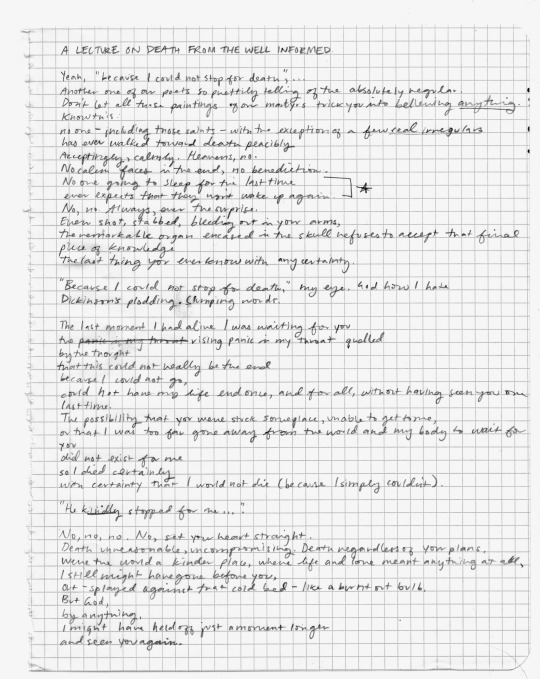 A LECTURE ON DEATH FROM THE WELL INFORMED
Yeah, "because I could not stop for death",...
Another one of our poets so prettily telling of the absolutely regular.
Don't let all those paintings of our martyrs trick you into believing anything.
Know this.
no one - including those saints - with the exception of a few real irregulars
has ever walked toward death peacibly
Acceptingly, calmly. Heavens, no.
No calm faces in the end, no benediction.
No one going to sleep for the last time
ever expects that they won't wake up again
No, no. Always, ever the surprise.
Even shot, stabbed, bleeding out in your arms,
the remarkable organ encased in the skull refuses to accept that final
piece of knowledge
The last thing you ever know with any certainty.
"Because I could not stop for death," my eye. God how I hate
Dickinson's plodding, words.
The last moment I had alive I was waiting for you
the panic in my throat rising panic in my throat quelled
by the thought
that this could not really be the end
because I could not go,
could not have my life end once, and for all, without having seen you one
last time.
The possibility that you were stuck someplace, unable to get to me,
or that I was too far gone away from the world and my body to wait for
you
did not exist for me
so I died certainly
with certainty that I would not die (because I simply couldn't).
"He kindly stopped for me..."
No, no, no. No, set your heart straight.
Death unreasonable, uncompromising. Death regardless of your plans.
Were the world a kinder place, where life and love meant anything at all,
I still might have gone before you,
out-splayed against that cold bed - like a burnt out bulb.
But God,
by anything,
I might have held off just a moment longer
and seen you again.